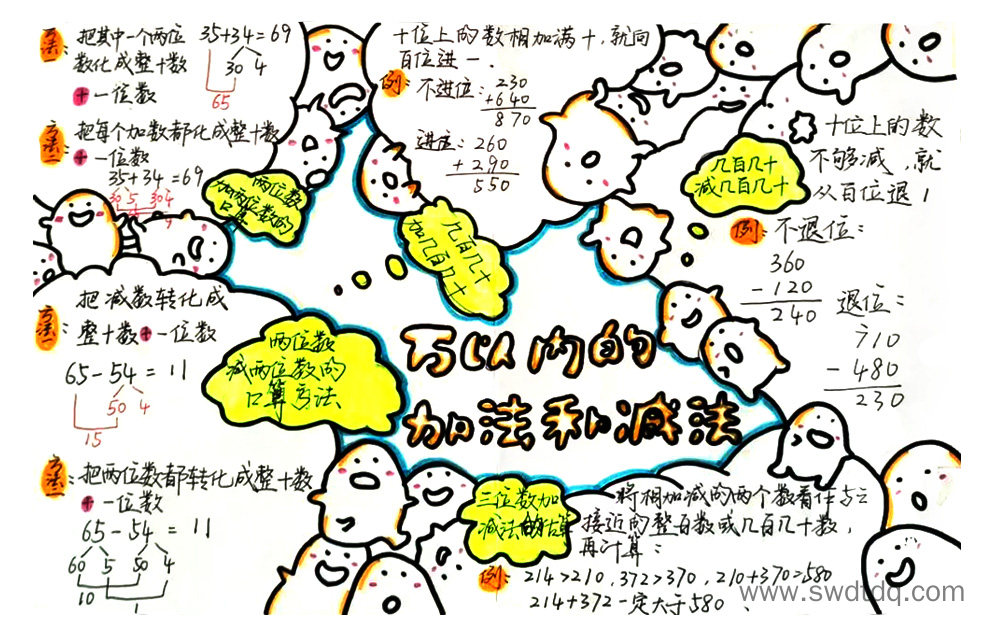 方法一：把其中一个两位
数化成整十数
+一位数
35+34=69
30 4
65
方法二：把每个加数都化成整十数
+一位数
35+34=69
30 5 30 4
9
两位数
加两位数的
口算
十位上的数相加满十，就向
百位进一.
例：不进位：230
+640
870
进位：260
+290
550
几百几十
加几百几十
几百几十
减几百几十
十位上的数
不够减，就
从百位退1
例：不退位：
360
-120
240
退位：
710
-480
230
万以内的
加法和减法
两位数
减两位数的
口算方法
方法一：把减数转化成
整十数+一位数
65-54=11
50 4
15
方法二：把两位数都转化成整十数
+一位数
65-54=11
60 5 50 4
10
1
三位数加
减法的估算
将相加减的两个数看作与之
接近的整百数或几百几十数，
再计算：
例：214>210，372>370，210+370=580
214+372一定大于580、
www.swdtdq.com